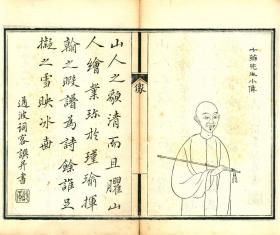 小像
像
山人之清而且臞山
人繪業珎於瑾瑜揮
翰之暇譜為詩餘誰足
擬之雪映冰壺
波詞客譔并書